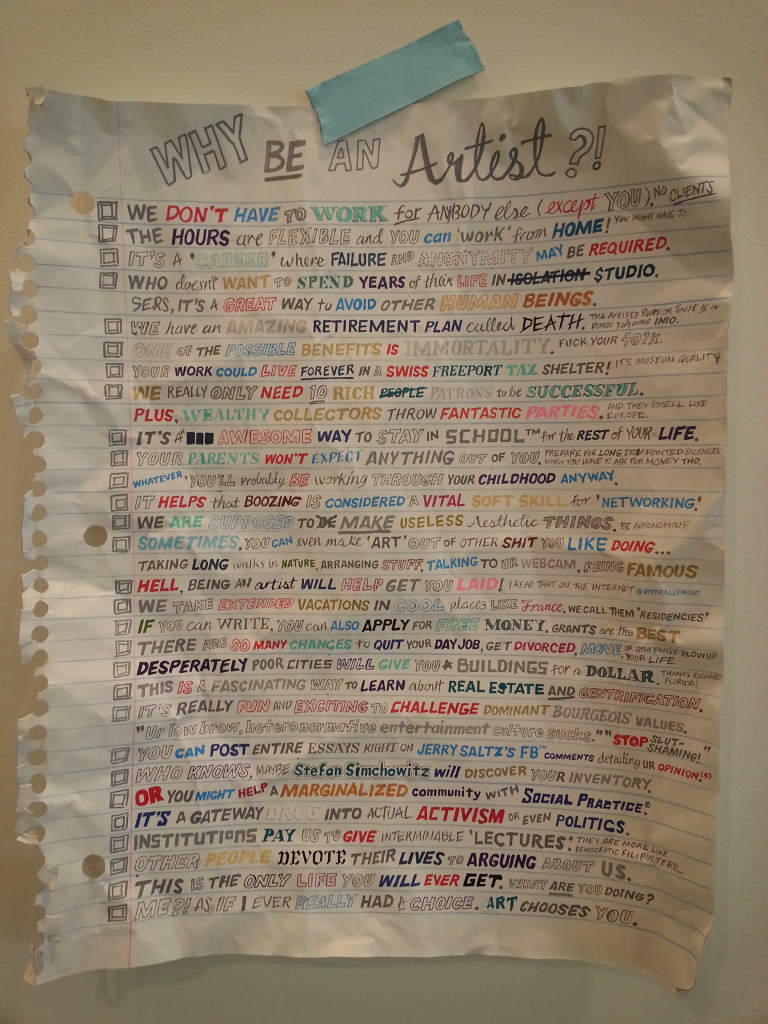 WHY BE AN Artist?!
WE DON'T HAVE TO WORK for ANYBODY else (except YOU). NO CLIENTS
THE HOURS are FLEXIBLE and YOU can 'work' from HOME! YOU MIGHT HAVE TO
IT'S A 'CAREER' where FAILURE AND ANONYMITY MAY BE REQUIRED.
WHO doesn't WANT TO SPEND YEARS of their LIFE IN ISOLATION STUDIO.
SERS, IT'S A GREAT WAY to AVOID OTHER HUMAN BEINGS.
WE have an AMAZING RETIREMENT PLAN called DEATH. The Artists Pension Trust is a Ponzi scheme IMO.
ONE OF THE POSSIBLE BENEFITS IS IMMORTALITY. FUCK YOUR 401K.
YOUR WORK COULD LIVE FOREVER IN A SWISS FREEPORT TAX SHELTER! IT'S MUSEUM QUALITY
WE REALLY ONLY NEED 10 RICH PEOPLE PATRONS to be SUCCESSFUL.
PLUS, WEALTHY COLLECTORS THROW FANTASTIC PARTIES. AND THEY SMELL LIKE EUROPE.
IT'S A AWESOME WAY TO STAY IN SCHOOL™ for the REST of YOUR LIFE.
YOUR PARENTS WON'T EXPECT ANYTHING OUT OF YOU. PREPARE FOR LONG DISAPPOINTED SILENCES WHEN YOU HAVE TO ASK FOR MONEY THO.
WHATEVER, YOU'LL probably BE working THROUGH YOUR CHILDHOOD ANYWAY.
IT HELPS that BOOZING IS CONSIDERED A VITAL SOFT SKILL for 'NETWORKING.'
WE ARE SUPPOSED TO MAKE USELESS Aesthetic THINGS. BE AUTONOMOUS!
SOMETIMES, YOU CAN even make 'ART' OUT OF OTHER SHIT YOU LIKE DOING...
TAKING LONG walks in NATURE, ARRANGING STUFF, TALKING TO UR WEBCAM, BEING FAMOUS
HELL, BEING AN artist WILL HELP GET YOU LAID! I READ THAT ON THE INTERNET
WE TAKE EXTENDED VACATIONS IN COOL places LIKE France. WE CALL THEM 'RESIDENCIES'
IF YOU can WRITE, YOU can ALSO APPLY FOR FREE MONEY. GRANTS are the BEST
THERE ARE SO MANY CHANCES to QUIT YOUR DAY JOB, GET DIVORCED, MOVE OR OTHERWISE BLOW UP YOUR LIFE.
DESPERATELY POOR CITIES WILL GIVE YOU BUILDINGS for a DOLLAR. THANKS RICHARD FLORIDA!
THIS IS A FASCINATING WAY TO LEARN about REAL ESTATE AND GENTRIFICATION.
IT'S REALLY FUN AND EXCITING TO CHALLENGE DOMINANT BOURGEOIS VALUES.
"Ur low brow, heteronormative entertainment culture sucks." "STOP SLUT-SHAMING!"
YOU CAN POST ENTIRE ESSAYS RIGHT ON JERRY SALTZ'S FB™ COMMENTS detailing UR OPINION(S)
WHO KNOWS, MAYBE Stefan Simchowitz will DISCOVER YOUR INVENTORY.
OR YOU MIGHT HELP A MARGINALIZED community WITH SOCIAL PRACTICE.®
IT'S A GATEWAY DRUG INTO ACTUAL ACTIVISM or EVEN POLITICS.
INSTITUTIONS PAY US TO GIVE INTERMINABLE 'LECTURES'. THEY ARE MORE LIKE DEMOCRATIC FILIBUSTERS...
OTHER PEOPLE DEVOTE THEIR LIVES TO ARGUING ABOUT US.
THIS IS THE ONLY LIFE YOU WILL EVER GET. WHAT ARE YOU DOING?
ME?! AS IF I EVER REALLY HAD A CHOICE. ART CHOOSES YOU.